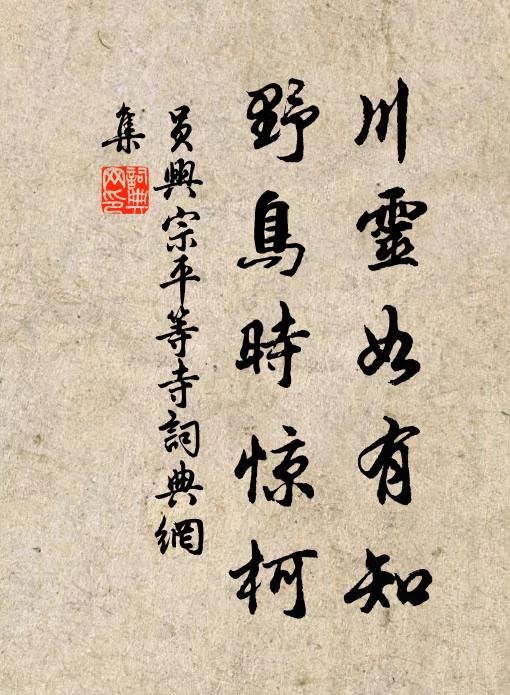 川靈如有知
野鳥時惊柯
員興宗平等寺詞典網
集
詞典
网印